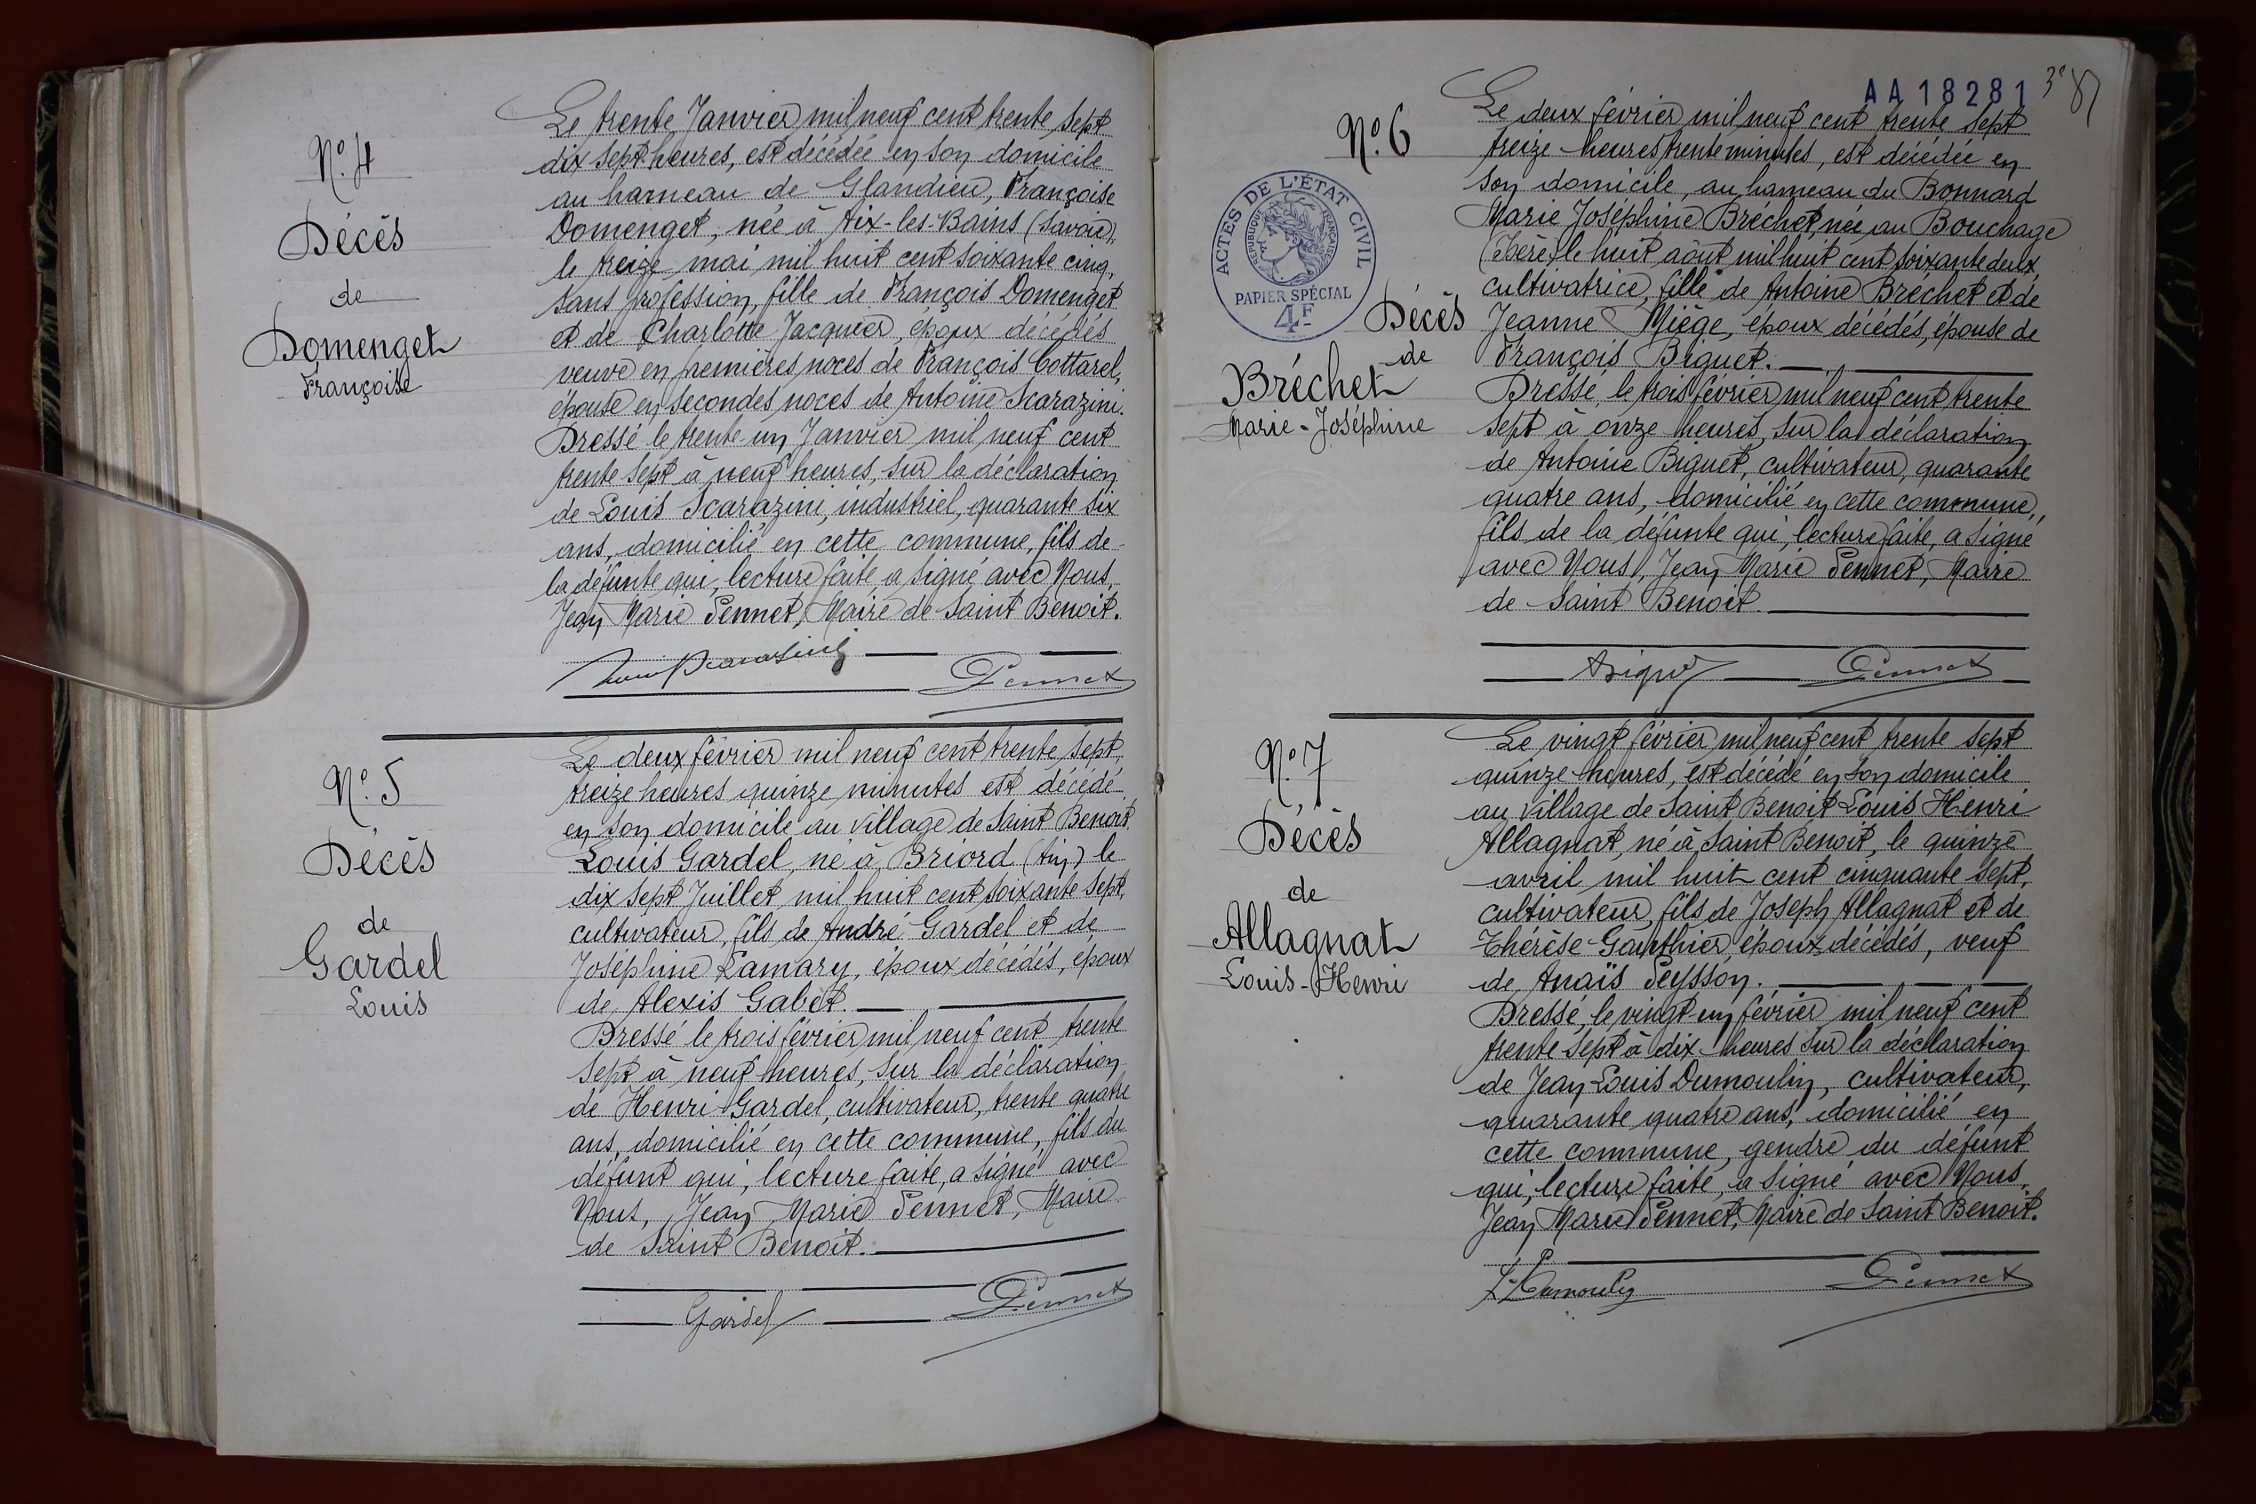 N° 4
Décès
de
Domenget
Françoise
Le trente Janvier mil neuf cent trente sept
dix sept heures, est décédée en son domicile
au hameau de Glandieu, Françoise
Domenget, née à Aix-les-Bains (Savoie),
le treize mai mil huit cent soixante cinq,
sans profession, fille de François Domenget
et de Charlotte Jacquier, époux décédés
veuve en premières noces de François Cottarel,
épouse en secondes noces de Antoine Scarazini.
Dressé le trente un Janvier mil neuf cent
trente sept à neuf heures, sur la déclaration
de Louis Scarazini, industriel, quarante six
ans, domicilié en cette commune, fils de
la défunte qui, lecture faite a signé avec Nous,
Jean Marie Pennet, Maire de Saint Benoit.
Pennet
N° 5
Décès
de
Gardel
Louis
Le deux février mil neuf cent trente sept,
treize heures quinze minutes est décédé
en son domicile au village de Saint Benoit
Louis Gardel, né à Briord (Ain) le
dix sept Juillet mil huit cent soixante sept,
cultivateur, fils de André Gardel et de
Joséphine Lamary, époux décédés, époux
de Alexis Gabet.
Dressé le trois février mil neuf cent trente
sept à neuf heures, sur la déclaration
de Henri Gardel, cultivateur, trente quatre
ans, domicilié en cette commune, fils du
défunt qui, lecture faite, a signé avec
Nous, Jean Marie Pennet, Maire
de Saint Benoit.
Gardel Pennet
AA18281
N° 6
ACTES DE L'ÉTAT CIVIL
RÉPUBLIQUE FRANÇAISE
PAPIER SPÉCIAL
4F
Décès
de
Bréchet
Marie-Joséphine
Le deux février mil neuf cent trente sept
treize heures trente minutes, est décédée en
son domicile, au hameau du Bonnard
Marie Joséphine Bréchet, née au Bouchage
(Isère) le huit août mil huit cent soixante deux,
cultivatrice, fille de Antoine Bréchet et de
Jeanne Miège, époux décédés, épouse de
François Biguet.
Dressé le trois février mil neuf cent trente
sept à onze heures, sur la déclaration
de Antoine Biguet, cultivateur, quarante
quatre ans, domicilié en cette commune,
fils de la défunte qui, lecture faite, a signé
avec Nous, Jean Marie Pennet, Maire
de Saint Benoit.
Pennet
N° 7
Décès
de
Allagnat
Louis-Henri
Le vingt février mil neuf cent trente sept
quinze heures, est décédé en son domicile
au village de Saint Benoit Louis Henri
Allagnat, né à Saint Benoit, le quinze
avril mil huit cent cinquante sept,
cultivateur, fils de Joseph Allagnat et de
Thérèse Gauthier, époux décédés, veuf
de Anaïs Peysson.
Dressé, le vingt un février mil neuf cent
trente sept à dix heures sur la déclaration
de Jean Louis Dumoulin, cultivateur,
quarante quatre ans, domicilié en
cette commune, gendre du défunt
qui, lecture faite, a signé avec Nous,
Jean Marie Pennet, Maire de Saint Benoit.
Pennet